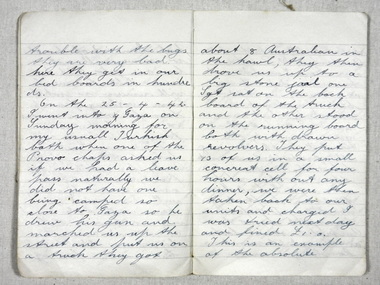 trouble with the bugs
they are very bad
here they get in our
bed boards in hundre
ds.
On the 25-4-42
I went into Gaza on
Sunday morning for
my usual Turkish
bath when one of the
Provo chaps asked us
if we had a leave
pass naturally we
did not have one
being camped so
close to Gaza so he
drew his gun and
marched us up the
street and put us on
a truck they got
about 8 Australian in
the hawl, they then
drove us up to a
big stone goal one
Sgt sat on the back
board of the truck
and the other stood
on the running board
both with drawn
revolvers. They put
of us in a small
concreat cell for four
hours with out any
dinner, we were then
taken back to our
units and charged I
was tried next day
and fined
This is an example
of the absolute